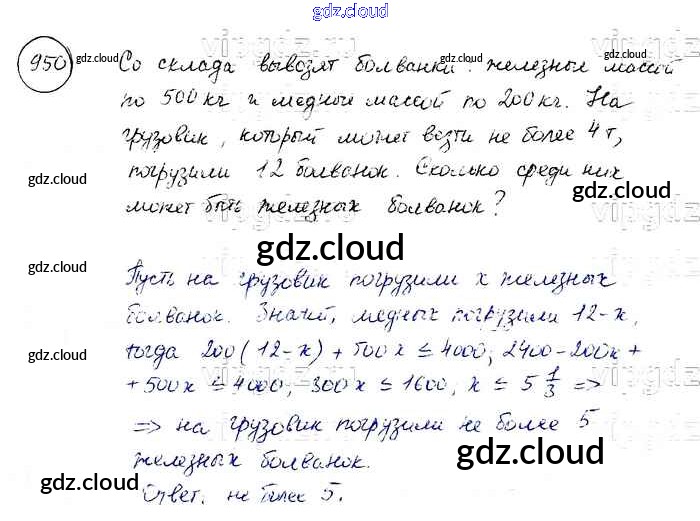 gdz.cloud
950 gdz.cloud Со склада вывозят болванки: железные массой
по 500 кг и медные массой по 200 кг. На
грузовик, который может везти не более 4 т,
gdz.cloud погрузили 12 болванок. Сколько среди них
может быть железных болванок?
gdz.cloud
gdz.cloud
gdz.cloud
Пусть на грузовик погрузили x железных
болванок. Значит, медных погрузили 12-x,
gdz.cloud тогда 200(12-x) + 500x ≤ 4000; 2400-200x +
+ 500x ≤ 4000; 300x ≤ 1600; x ≤ 5 1/3 =>
=> на грузовик погрузили не более 5
железных болванок.
gdz.cloud
gdz.cloud Ответ. не более 5.